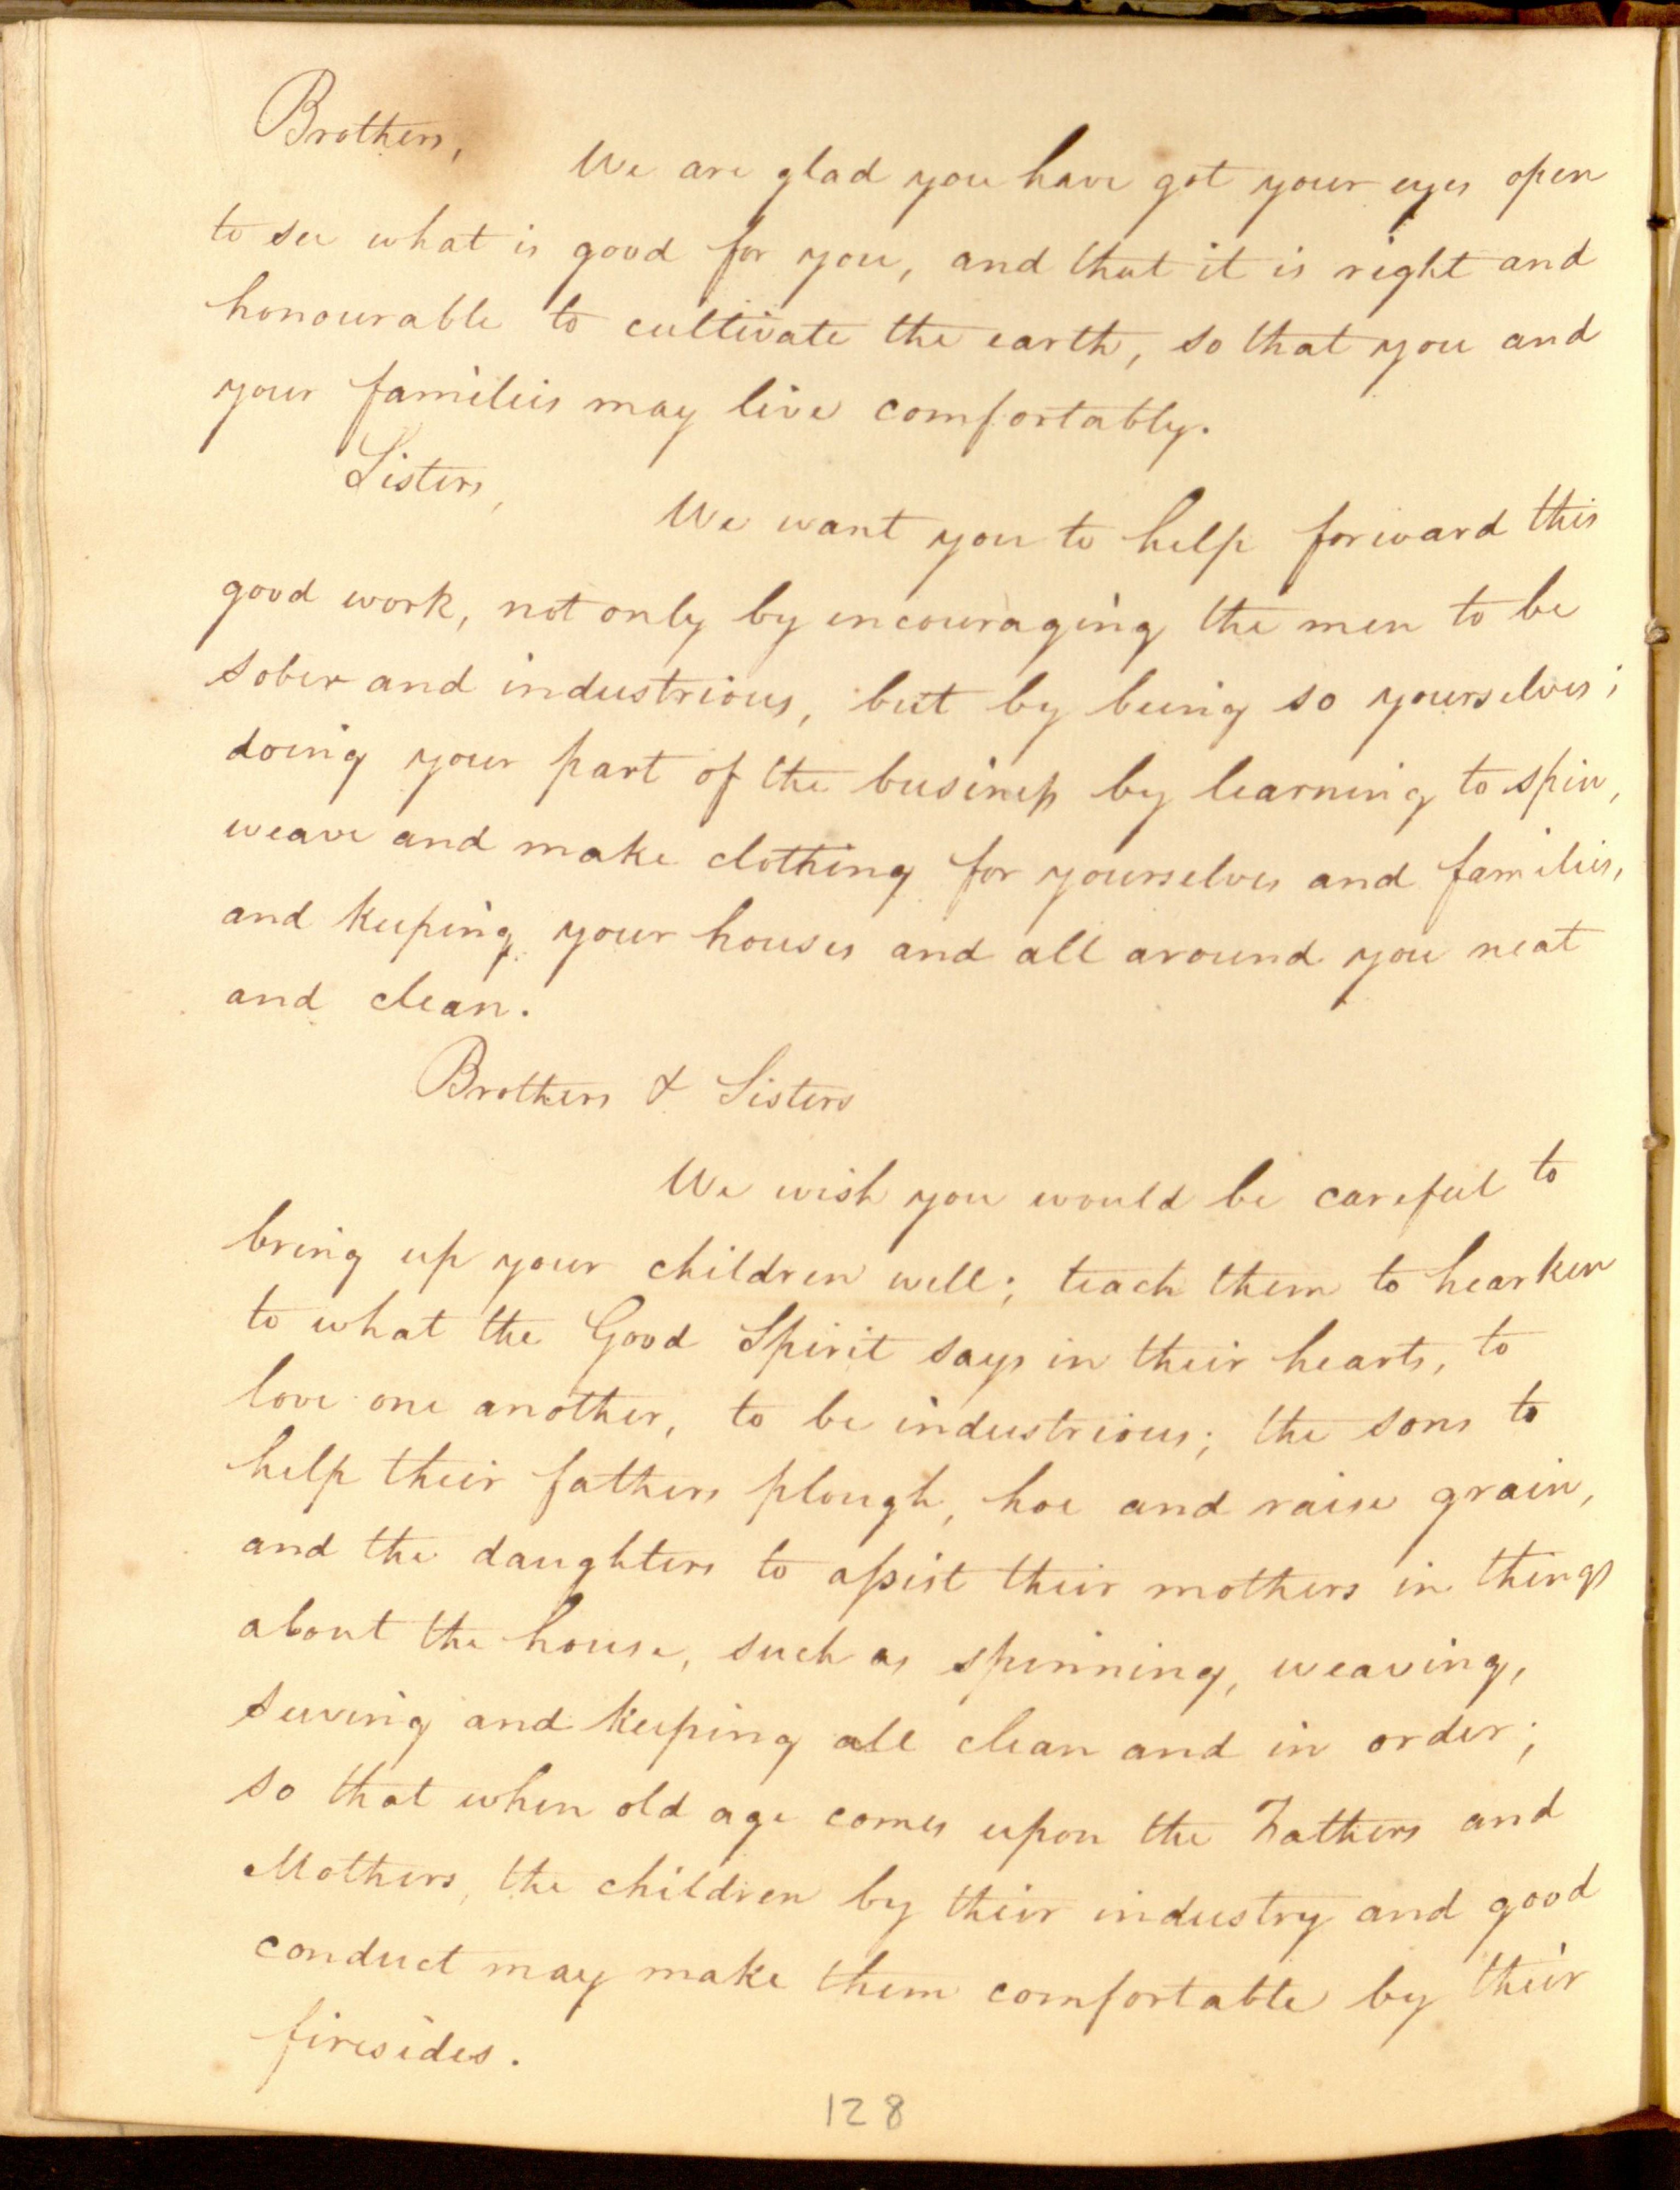 Brothers,
We are glad you have got your eyes open
to see what is good for you, and that it is right and
honourable to cultivate the earth, so that you and
your families may live comfortably.
Sisters,
We want you to help forward this
good work, not only by encouraging the men to be
sober and industrious, but by being so yourselves;
doing your part of the business by learning to spin,
weave and make clothing for yourselves and families,
and keeping your houses and all around you neat
and clean.
Brothers & Sisters
We wish you would be careful to
bring up your children well; teach them to hearken
to what the Good Spirit says in their hearts, to
love one another, to be industrious; the sons to
help their fathers plough, hoe and raise grain,
and the daughters to assist their mothers in things
about the house, such as spinning, weaving,
sewing and keeping all clean and in order;
so that when old age comes upon the Fathers and
Mothers, the children by their industry and good
conduct may make them comfortable by their
firesides.
128